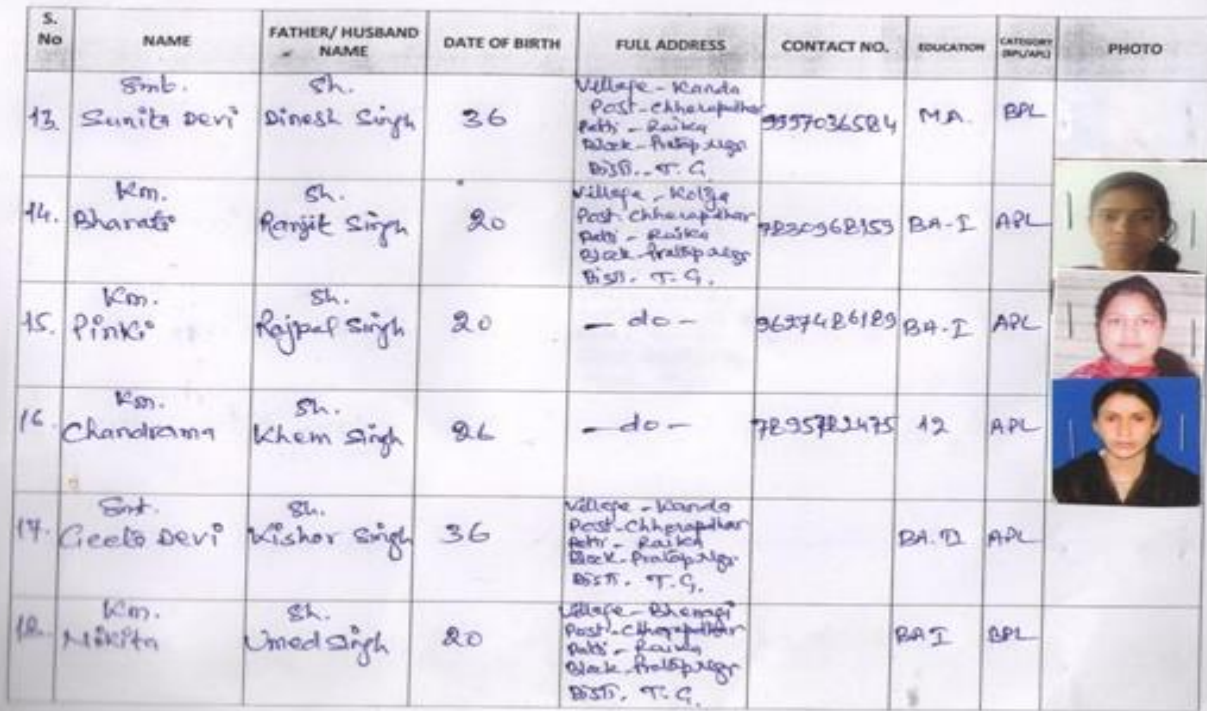 S. No NAME FATHER/ HUSBAND NAME DATE OF BIRTH FULL ADDRESS CONTACT NO. EDUCATION CATEGORY (BPL/APL) PHOTO
13. Smt. Sunita Devi Sh. Dinesh Singh 36 M.A. BPL
Village - Kanda
Post - Chherapadhar
Patti - Raika
Block - Pratap Ngr
Distt. T.G.
14. Km. Bharati Sh. Ranjit Singh 20 BA-I APL
Village -
Post - Chherapadhar
Patti - Raika
Block - Pratap Ngr
Distt. T.G.
15. Km. Pinki Sh. Rajpal Singh 20 - do - BA-I APL
16. Km. Chandrama Sh. Khem Singh 26 - do - 12 APL
17. Smt. Geeta Devi Sh. Kishor Singh 36 APL
Village - Kanda
Post - Chherapadhar
Patti - Raika
Block - Pratap Ngr
Distt. T.G.
18. Km. Nikita Sh. Umed Singh 20 BA I
Village -
Post - Chherapadhar
Patti - Raika
Block - Pratap Ngr
Distt. T.G.